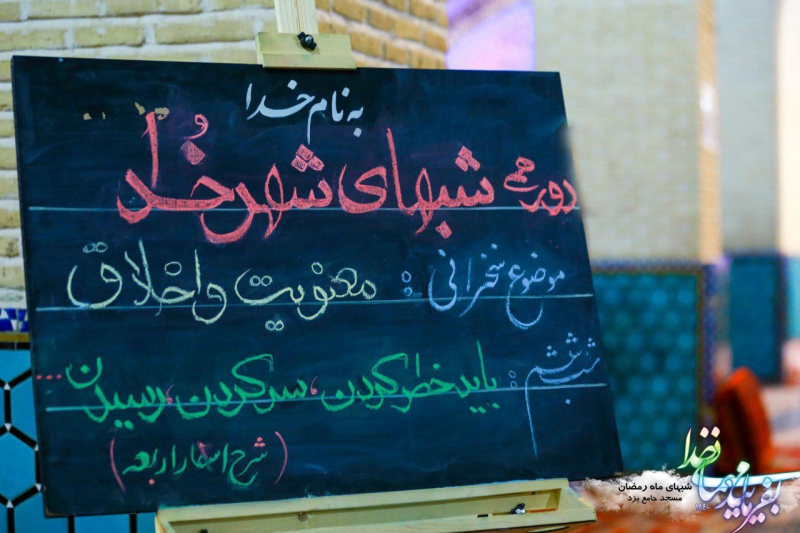 به نام خدا
دورهمی شبهای شهر خدا
موضوع سخنرانی : معنویت و اخلاق
شب ششم : باید خطر کردن، سفر کردن، رسیدن ...
(شرح اسفار اربعه)
بفرمایید مهمانی خدا
شبهای ماه رمضان
مسجد جامع یزد
۱۴۴۰